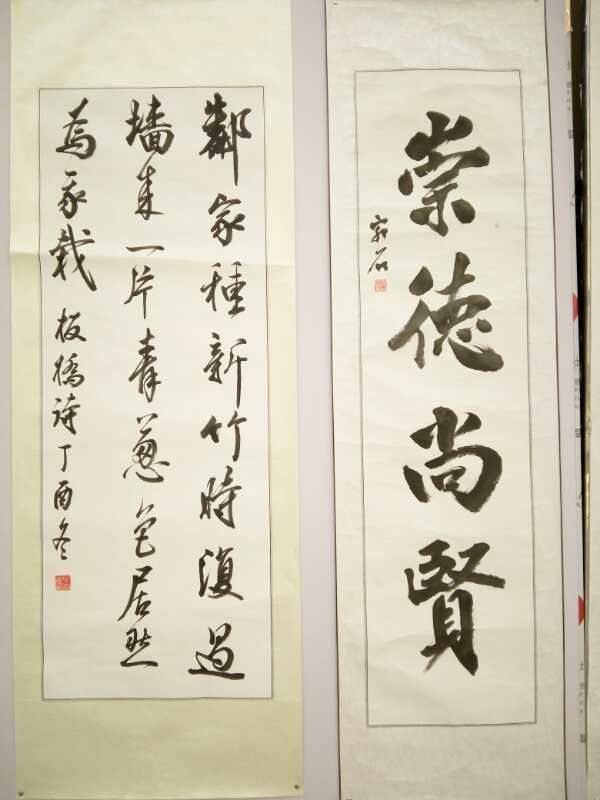 崇德尚賢
鄰家種新竹時復過
墻来一片青葱色居然
為我栽 板橋詩丁酉冬